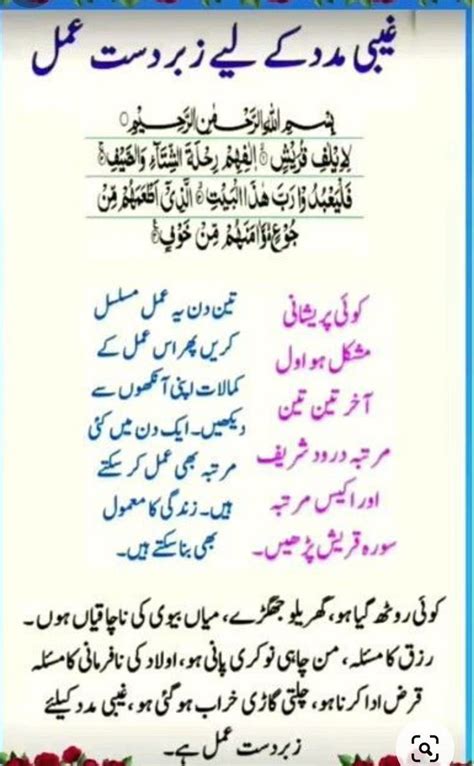 غیبی مدد کے لیے زبردست عمل
بِسْمِ اللهِ الرَّحْمٰنِ الرَّحِيْمِ
لِاِيْلٰفِ قُرَيْشٍ اٖلٰفِهِمْ رِحْلَةَ الشِّتَآءِ وَالصَّيْفِ
فَلْيَعْبُدُوْا رَبَّ هٰذَا الْبَيْتِ الَّذِيْۤ اَطْعَمَهُمْ مِّنْ
جُوْعٍ وَّاٰمَنَهُمْ مِّنْ خَوْفٍ
کوئی پریشانی
مشکل ہو اول
آخر تین تین
مرتبہ درود شریف
اور اکیس مرتبہ
سورہ قریش پڑھیں۔
تین دن یہ عمل مسلسل
کریں پھر اس عمل کے
کمالات اپنی آنکھوں سے
دیکھیں۔ ایک دن میں کئی
مرتبہ بھی عمل کر سکتے
ہیں۔ زندگی کا معمول
بھی بنا سکتے ہیں۔
کوئی روٹھ گیا ہو، گھریلو جھگڑے، میاں بیوی کی ناچاقیاں ہوں۔
رزق کا مسئلہ، من چاہی نوکری پانی ہو، اولاد کی نافرمانی کا مسئلہ
قرض ادا کرنا ہو، چلتی گاڑی خراب ہو گئی ہو، غیبی مدد کیلئے
زبردست عمل ہے۔